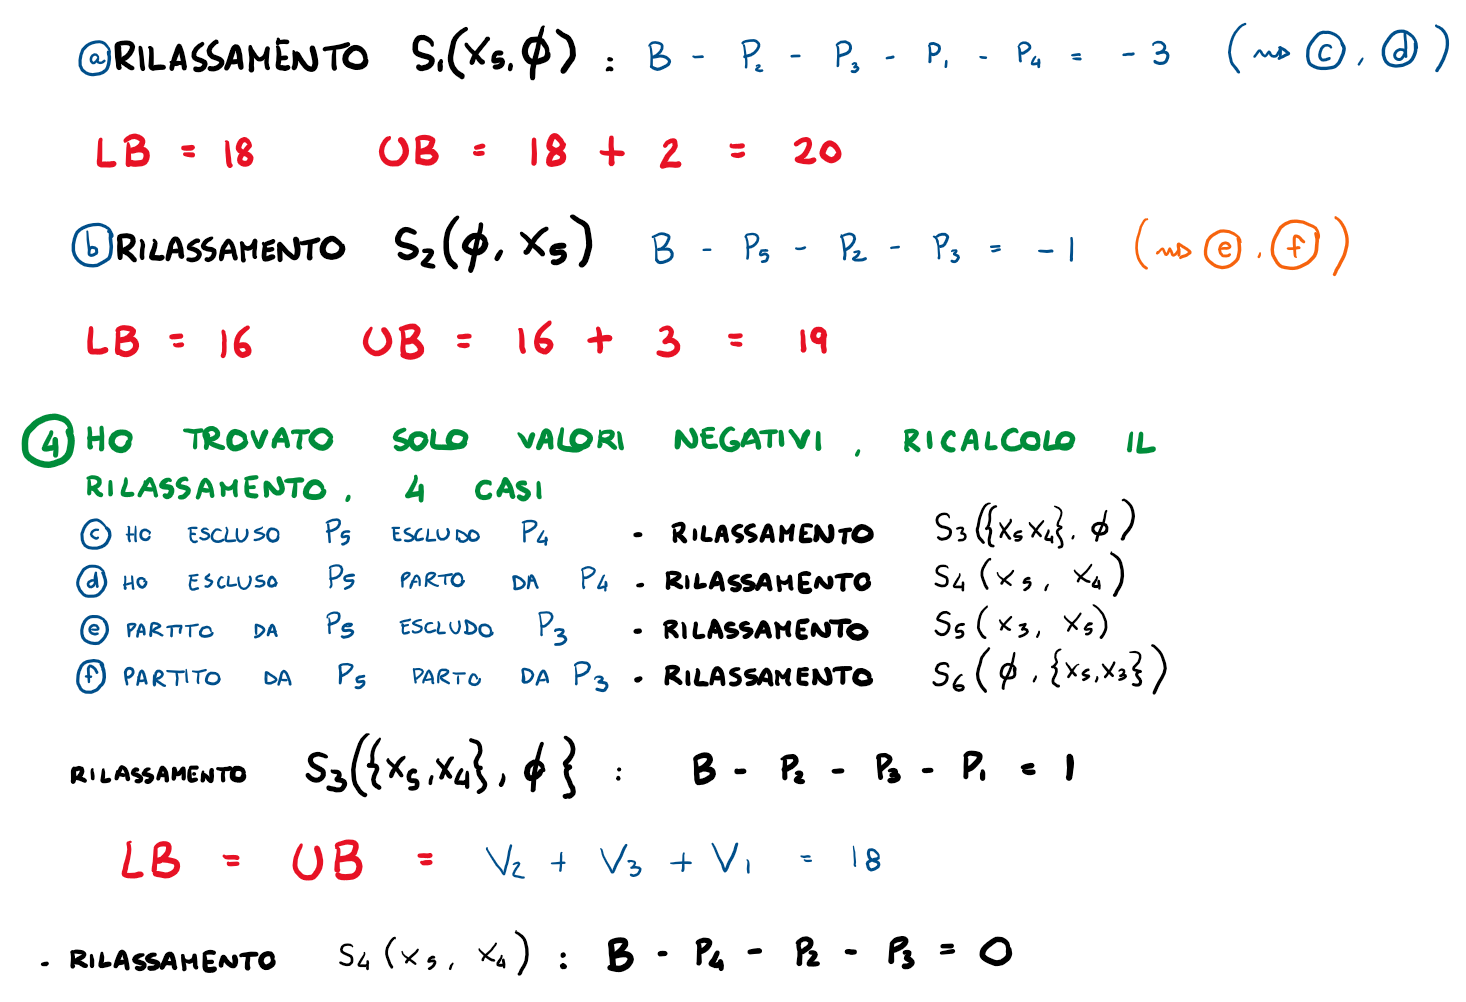 ⓐ RILASSAMENTO S₁(X₅, ϕ) : B - P₂ - P₃ - P₁ - P₄ = - 3 (⇝ ⓒ, ⓓ)
LB = 18 UB = 18 + 2 = 20
ⓑ RILASSAMENTO S₂(ϕ, X₅) B - P₅ - P₂ - P₃ = - 1 (⇝ ⓔ, ⓕ)
LB = 16 UB = 16 + 3 = 19
④ HO TROVATO SOLO VALORI NEGATIVI, RICALCOLO IL
RILASSAMENTO, 4 CASI
ⓒ HO ESCLUSO P₅ ESCLUDO P₄ - RILASSAMENTO S₃({X₅ X₄}, ϕ)
ⓓ HO ESCLUSO P₅ PARTO DA P₄ - RILASSAMENTO S₄(X₅, X₄)
ⓔ PARTITO DA P₅ ESCLUDO P₃ - RILASSAMENTO S₅(X₃, X₅)
ⓕ PARTITO DA P₅ PARTO DA P₃ - RILASSAMENTO S₆(ϕ, {X₅,X₃})
RILASSAMENTO S₃({X₅,X₄}, ϕ} : B - P₂ - P₃ - P₁ = 1
LB = UB = V₂ + V₃ + V₁ = 18
- RILASSAMENTO S₄(X₅, X₄) : B - P₄ - P₂ - P₃ = 0